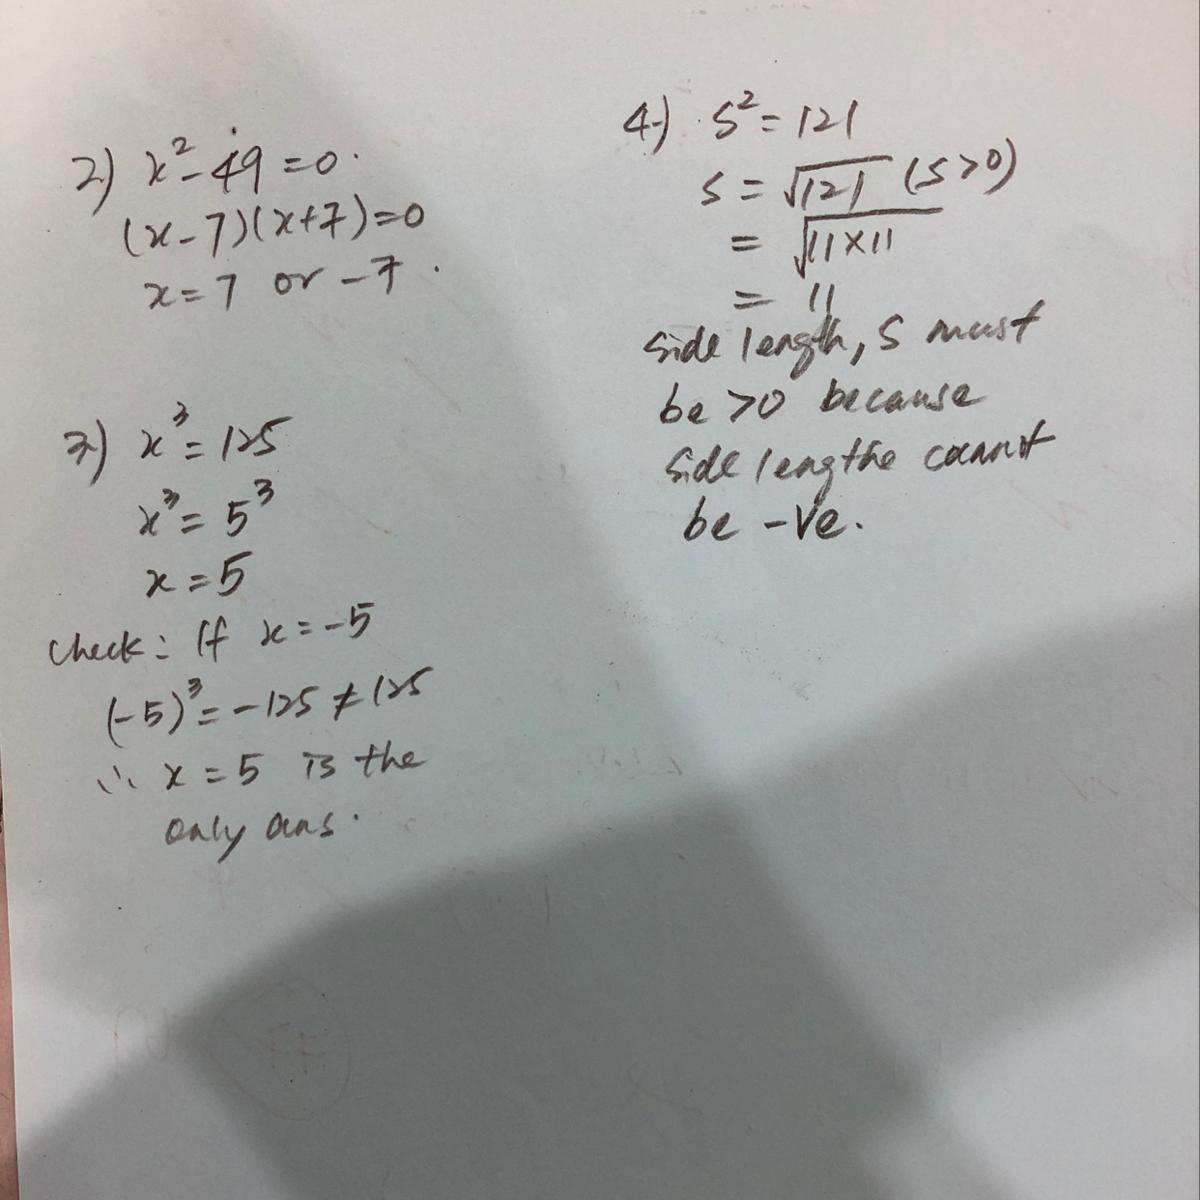 2) x² - 49 = 0.
(x-7)(x+7)=0
x = 7 or -7.
3) x³ = 125
x³ = 5³
x = 5
Check: If x = -5
(-5)³ = -125 ≠ 125
∴ x = 5 is the
only ans.
4) s² = 121
s = √121 (s>0)
= √11×11
= 11
Side length, s must
be >0 because
side lengthe cannot
be -ve.